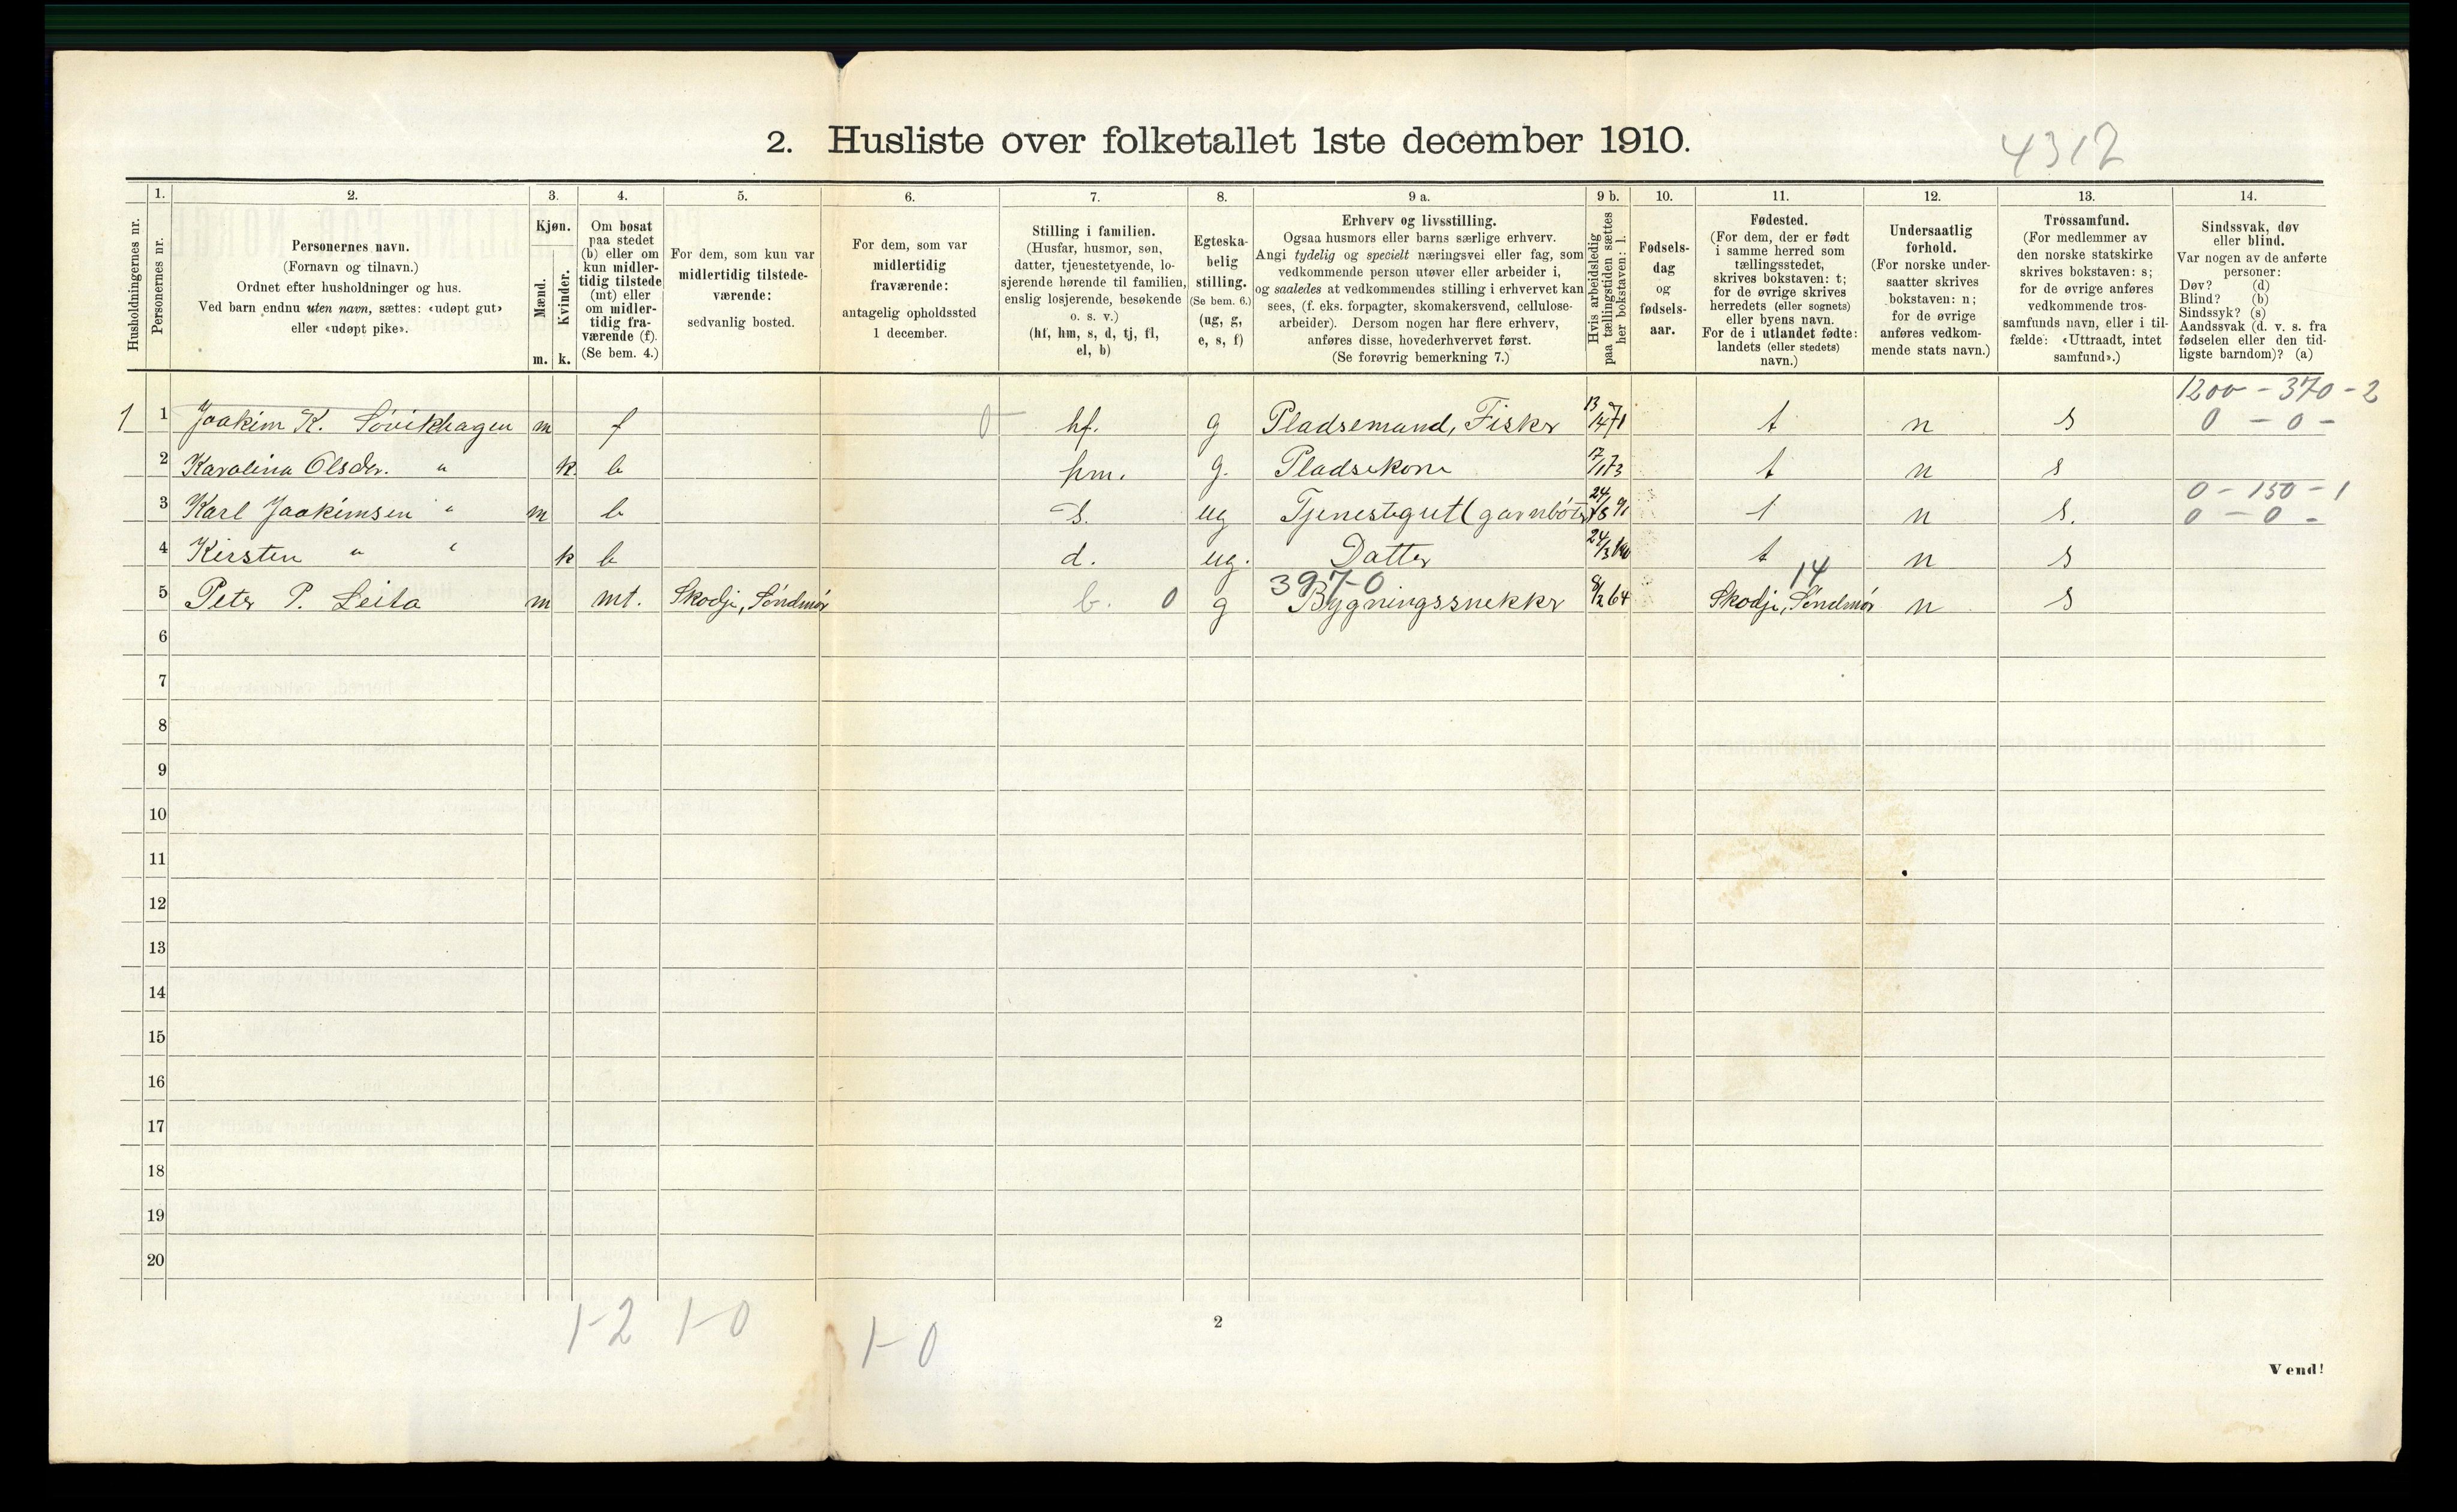 2. Husliste over folketallet 1ste december 1910.
4312
Husholdningernes nr.
1.
Personernes nr.
2.
Personernes navn.
(Fornavn og tilnavn.)
Ordnet efter husholdninger og hus.
Ved barn endnu uten navn, sættes: «udøpt gut»
eller «udøpt pike».
3.
Kjøn.
Mænd.
Kvinder.
m. k.
4.
Om bosat
paa stedet
(b) eller om
kun midler-
tidig tilstede
(mt) eller
om midler-
tidig fra-
værende (f).
(Se bem. 4.)
5.
For dem, som kun var
midlertidig tilstede-
værende:
sedvanlig bosted.
6.
For dem, som var
midlertidig
fraværende:
antagelig opholdssted
1 december.
7.
Stilling i familien.
(Husfar, husmor, søn,
datter, tjenestetyende, lo-
sjerende hørende til familien,
enslig losjerende, besøkende
o. s. v.)
(hf, hm, s, d, tj, fl,
el, b)
8.
Egteska-
belig
stilling.
(Se bem. 6.)
(ug, g,
e, s, f)
9 a.
Erhverv og livsstilling.
Ogsaa husmors eller barns særlige erhverv.
Angi tydelig og specielt næringsvei eller fag, som
vedkommende person utøver eller arbeider i,
og saaledes at vedkommendes stilling i erhvervet kan
sees, (f. eks. forpagter, skomakersvend, cellulose-
arbeider). Dersom nogen har flere erhverv,
anføres disse, hovederhvervet først.
(Se forøvrig bemerkning 7.)
9 b.
Hvis arbeidsledig
paa tællingstiden sættes
her bokstaven: l.
10.
Fødsels-
dag
og
fødsels-
aar.
11.
Fødested.
(For dem, der er født
i samme herred som
tællingsstedet,
skrives bokstaven: t;
for de øvrige skrives
herredets (eller sognets)
eller byens navn.
For de i utlandet fødte:
landets (eller stedets)
navn.)
12.
Undersaatlig
forhold.
(For norske under-
saatter skrives
bokstaven: n;
for de øvrige
anføres vedkom-
mende stats navn.)
13.
Trossamfund.
(For medlemmer av
den norske statskirke
skrives bokstaven: s;
for de øvrige anføres
vedkommende tros-
samfunds navn, eller i til-
fælde: «Uttraadt, intet
samfund».)
14.
Sindssvak, døv
eller blind.
Var nogen av de anførte
personer:
Døv? (d)
Blind? (b)
Sindssyk? (s)
Aandssvak (d. v. s. fra
fødselen eller den tid-
ligste barndom)? (a)
1200 - 370 - 2
1 1 Joakim K. Sövikhagen m f 0 hf. g Pladsemand, Fisker t n s 0 - 0 -
2 Karolina Olsdr. " k. b hm. g. Pladsekone 17/1 73 t n s
0 - 150 - 1
3 Karl Joakimsen " m b s. ug Tjenestegut (garnbøter) t n s. 0 - 0 -
4 Kirsten " " k b d. ug. Datter t n s
397-0 14
5 Peter P. Leita m mt. Skodje, Søndmør b. 0 g Bygningssnekker 64 Skodje, Søndmør n s
6
7
8
9
10
11
12
13
14
15
16
17
18
19
20
1-2 1-0 1-0
2
Vend!